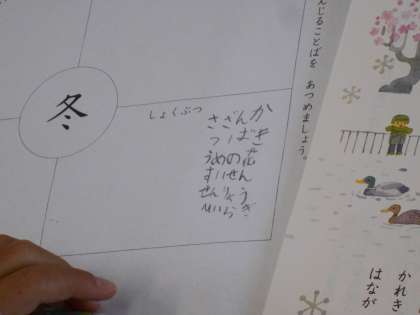 んじることばを あつめましょう。
冬
しょくぶつ
さざんか
つばき
うめの花
すいせん
せんりょう
ひいらぎ
かれき
はなが